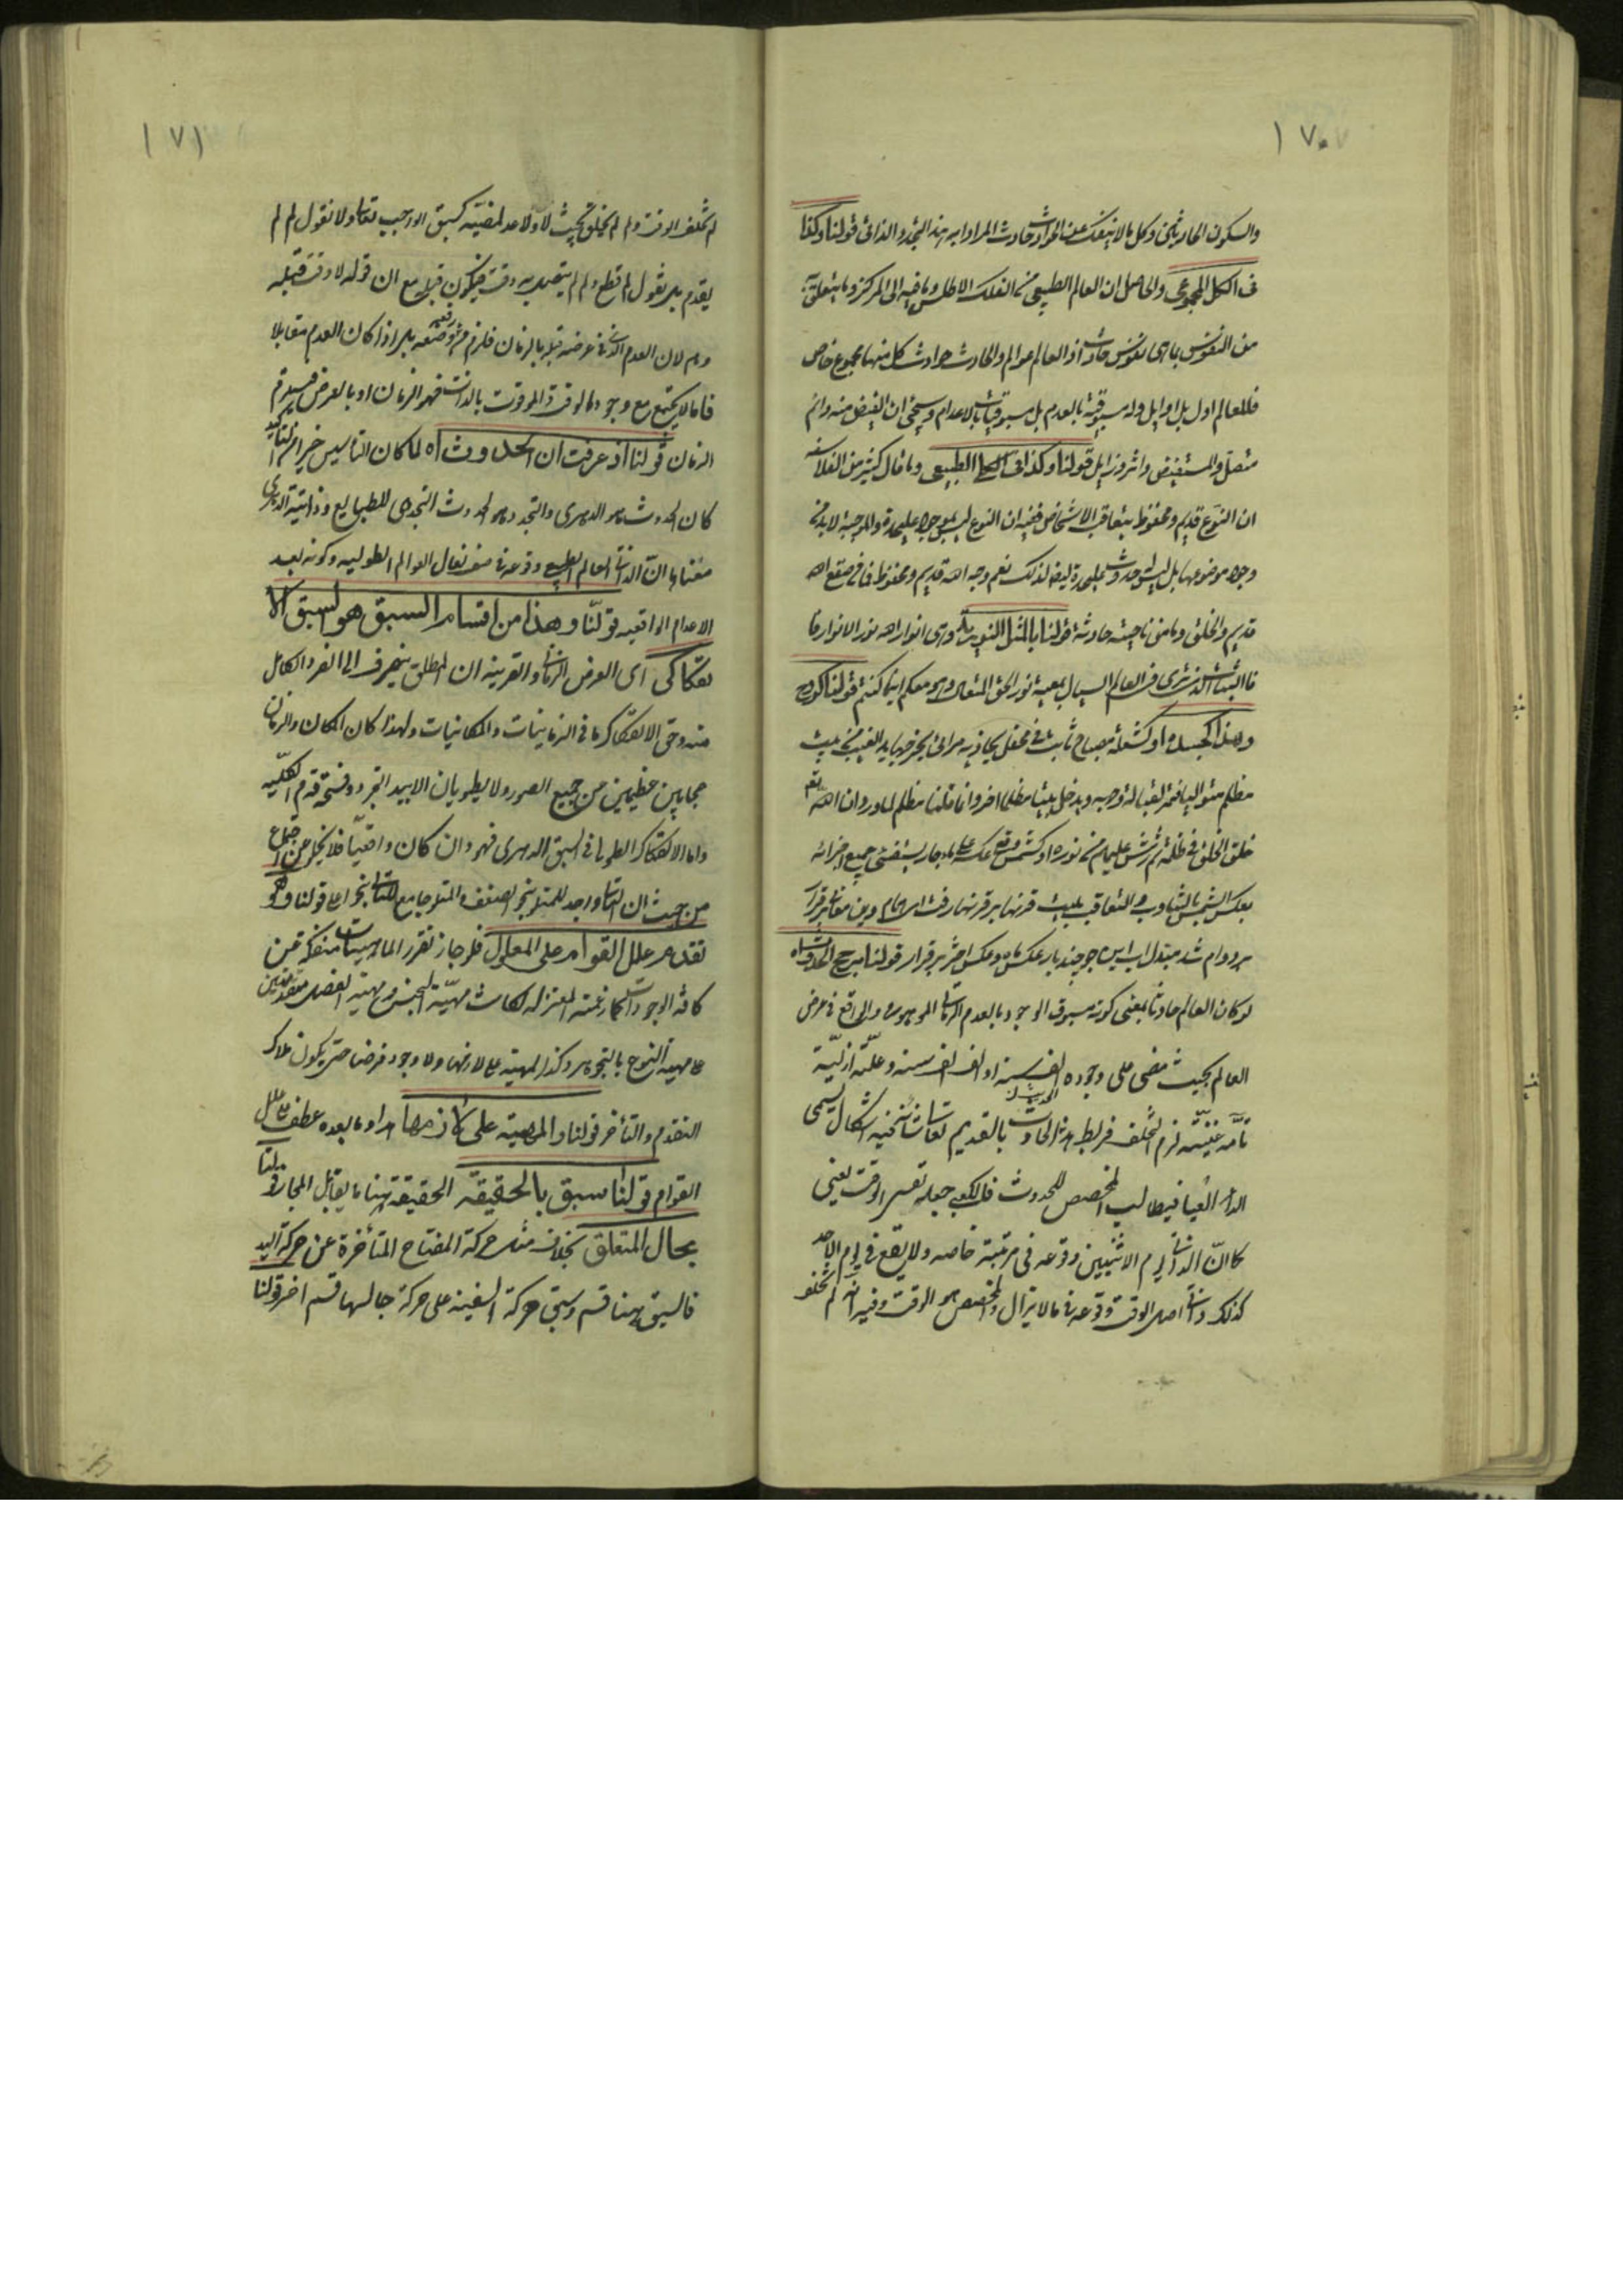 ١٧٠
والسكون الحادثين وكل ما لا ينفك عن الحوادث حادث المراد به هذا التجدد الذاتي قولنا وكذا
في الكل المجموعي والحاصل ان العالم الطبيعي من الفلك الاطلس وما فيه الى المركز وما يتعلق به
من النفوس بما هي نفوس حادث اذ العالم عوالم والحادث حوادث كل منها مجموع خاص
فللعالم اول بل اوايل وله مسبوقية بالعدم بل مسبوقيات بالاعدام وسيجئ ان الفيض منه دائم
متصل والمستفيض داثر وزايل قولنا وكذا في الكلي الطبيعي وما قال كثير من الفلاسفة
ان النوع قديم ومحفوظ بتعاقب الاشخاص ففيه ان النوع ليس بموجود عليحدة والموجبة لابد من
وجود موضوعها بل ليس له حدوث عليحدة ايضا لذلك نعم وجه الله قديم ومحفوظ فما في صقع الله
قديم والخلق وما من ناحيته حادثة قولنا بالمثل النورية وهي انوار الله نور الانوار فما
فالثبات الذي ترى في العالم السيال بمعية نور الحق المتعال وهو معكم اينما كنتم قولنا كروح
ولهذا الجسد او كشعلة مصباح ثابت في محفل يحاذيه مرائي يخرجها يد الغيب من بيت
مظلم متواليا فتمر القبالة وجهه ويدخل بيتا مظلما اخر وانما قلنا مظلم لما ورد ان الله تعالى
خلق الخلق في ظلمة ثم رش عليهم من نوره او كشمس وقع عكسه على ماء جار يستضئ جميع اجزائه
بعكس الشمس بالتناوب والتعاقب بيت قرنها بر قرنها رفت اي همام وين معاني برقرار
بر دوام شد مبدل آب اين جو چند بار عكس ماه وعكس اختر برقرار قولنا مرجح الحدوث اه
لو كان العالم حادثا بمعنى كونه مسبوق الوجود بالعدم الزماني الموهوم او الواقع في عرض
العالم بحيث مضى على وجوده الف سنة او الف الف سنة وعلته ازلية
تامة غنية لزم التخلف في ربط هذا الحادث بالقديم تعالى شانه فيه اشكال يسمى
الداء العيا فيطالب المخصص للحدوث فالكعبي جعله نفس الوقت يعني
كما ان الذاتي ليوم الاثنين وقوعه في مرتبة خاصه ولا يقع في يوم الاحد
كذلك ذاتي اصل الوقت وقوعه في ما لا يزال والمخصص هو الوقت وفيه انه لم تخلف
١٧١
لم تخلف الوقت ولم لم يخلق بحيث لا ولا حد لمضيه كسبق الواجب تعالى ولا نقول لم لم
يقدم بل نقول لم قطع ولم لم يتقدمه وقت فيكون قبله مع ان قوله لا وقت قبله
وهم لان العدم الذي في عرضه قبله بالزمان فلزم من رفعه وضعه بل اذا كان العدم مقابلا
فاما لا يجتمع مع وجود الوقت والموقوت بالذات فهو الزمان او بالعرض فيستلزم
الزمان قولنا اذ عرفت ان الحدوث اه لما كان التاسيس خير من التاكيد
كان الحدوث هو الدهري والتجدد هو الحدوث التجددي للطبايع وذاتية الدهري
معناها ان الذاتي للعالم الطبيعي وقوعه في صف نعال العوالم الطولية وكونه بعد
الاعدام الواقعيه قولنا وهذا من اقسام السبق هو لسبق الا
نفكاكى اى العرض الزماني والقرينه ان المطلق ينصرف الى الفرد الكامل
منه وحق الانفكاك ما في الزمانيات والمكانيات ولهذا كان المكان والزمان
حجابين عظيمين من جميع الصور ولا يطويان الا بيد التجرد وفسحة قدم الكلية
واما الانفكاك الطولى في السبق الدهرى فهو وان كان واقعيا فلا يخلو عن اجتماع
من حيث ان العالي واجد للمتلو بنحو الضعف والمتلو جامع للتالي بنحو اعلى قولنا وهو
تقدم علل القوام على المعلول فلو جاز تقرر الماهيات منفكة عن
كافة الوجودات كما زعمته المعتزله لكانت مهية الجنس ومهية الفصل متقدمتين
على مهية النوع بالتجوهر وكذا المهية على لازمها ولا وجود فرضا حتى يكون ملاك
التقدم والتأخر قولنا والمهية على لازمها هذا وما بعده عطف على علل
القوام قولنا سبق بالحقيقة الحقيقة ههنا ما يقابل المجاز قولنا
بحال المتعلق بخلاف مثل حركة المفتاح المتأخرة عن حركة اليد
فالسبق ههنا قسم وسبق حركة السفينة على حركة جالسها قسم اخر قولنا